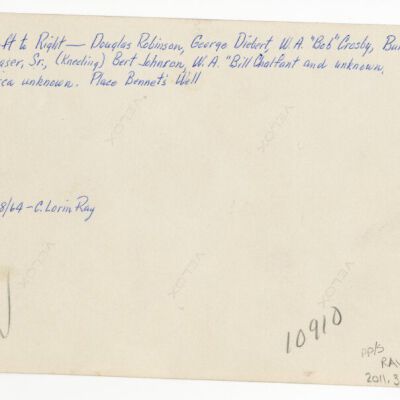 ft to Right — Douglas Robinson, George Diebert, W.A. "Bob" Crosby, Bur
aser, Sr., (Kneeling) Bert Johnson, W.A. "Bill Chalfant and unknown,
ca unknown. Place Bennet's Well
8/64 - C. Lorin Ray
VELOX
VELOX
VELOX
VELOX
VELOX
10910
PP/S
RAY
2011.3